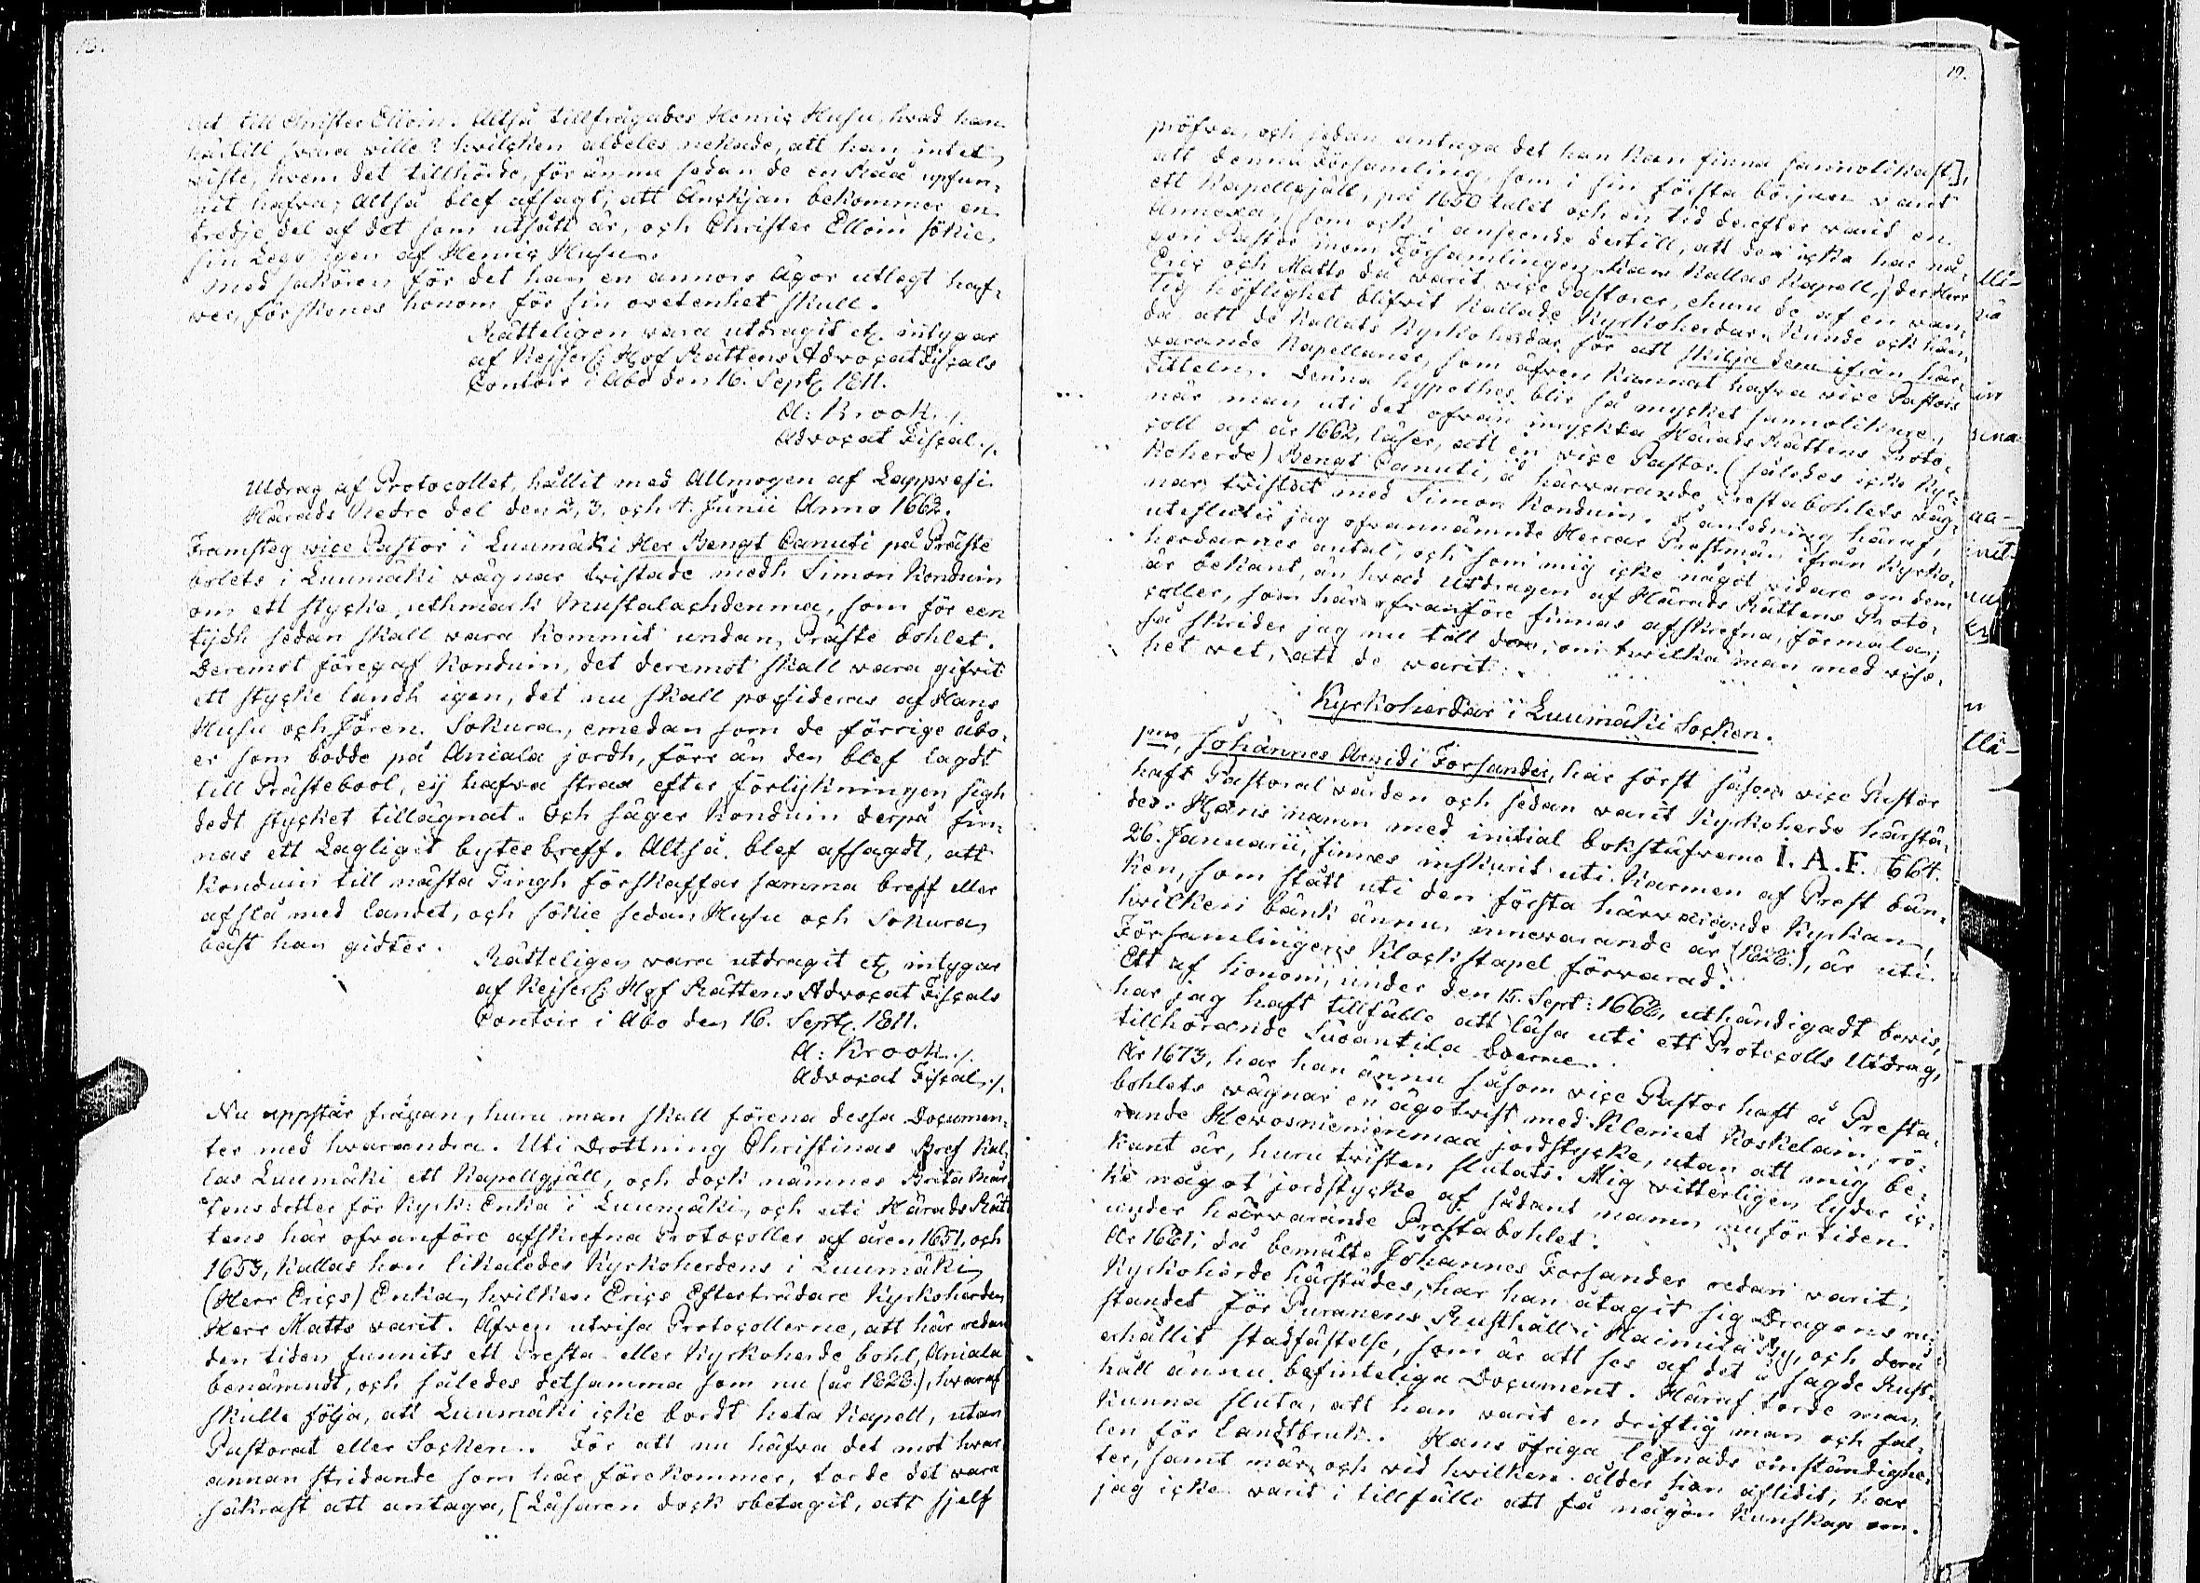 18.
det till Christer Elloin. Altså tillfrågades Henric Husu, hvad han
härtill svara ville? hvilcken aldeles nekade, att han intet
viste, hvem det tillhörde, för än nu sedan de en Råå upfun-
nit hafva; Altså blef afsagt, att Änckjan bekommer en
tredje del af det som utsått är, och Christer Elloin sökie
sin Lego igen af Henric Husu.
Med saköron för det han en annors ägor utlegt haf-
wer, förskones honom för sin ovetenhet skull.
Rätteligen vara utdragit etc. intygar
af Kejserl: Hof Rättens Advocat Fiscals
Contoir i Åbo den 16. Sept. 1811.
A: Krook./.
Advocat Fiscal./.
Utdrag af Protocollet, hållit med Allmogen af Lappvesi
Härads Nedre del den 2, 3. och 4. Junii Anno 1662.
Framsteg vice Pastor i Luumäki Her Bengt Canuti på Präste
bolets i Luumäki vägnar tvistade medh Simon Konduin
om ett stycke uthmark Mustalachdenma, som för een
tijdh sedan skall vara kommit undan Präste bohlet.
Deremot föregaf Konduin, det deremot skall vara gifvit
ett stycke landh igen, det nu skall possideras af Hans
Husu och Jören Sokura, emedan som de förrige åbo-
er som bodde på Aniala jordh, förr än den blef lagdt
till Prästebool, eij hafva strax efter förlijkningen sigh
dedt stycket tillägnat. Och säger Konduin derpå fin-
nas ett Lagligit bytesbreff. Altså blef afsagdt, att
Konduin till nästa Tingh förskaffar samma breff eller
afslå med landet, och sökie sedan Husu och Sokura,
bäst han gidter.
Rätteligen vara utdragit etc. intygar
af Kejserl: Hof Rättens Advocat Fiscals
Contoir i Åbo den 16. Sept. 1811.
A: Krook./.
Advocat Fiscal./.
Nu uppstår frågan, huru man skall förena dessa Documen-
ter med hvarandra. Uti Drottning Christinas Bref kal-
las Luumäki ett Kapellgjäll, och dock nämnes Brita Mår-
tensdotter för Kyrk: Enkia i Luumäki, och uti Härads Rät-
tens här ofvanföre afskrefna Protocoller af åren 1651. och
1653, kallas hon likaledes Kyrkoherdens i Luumäki
(Herr Erics) Enkia, hvilken Erics Efterträdare Kyrkoherden
Herr Matts varit. Äfven utvisa Protocollerne, att här redan
den tiden funnits ett Presta- eller Kyrkoherde bohl, Aniala
benämndt, och således detsamma som nu (år 1828.), hvaraf
skulle följa, att Luumäki icke bordt heta Kapell, utan
Pastorat eller Socken. För att nu häfva det mot hvar
annan stridande som här förekommer, torde det vara
säkrast att antaga, [Läsaren dock obetagit, att sjelf
19.
pröfva, och sedan antaga det han kan finna sannolikast],
att denna Församling, som i sin första början varit
ett Kapellgjäll, på 1650 talet och en tid derefter varit en
Annexa, (som ock i anseende dertill, att der icke har nå-
gon Pastor inom Församlingen kan kallas Kapell,) der Herr
Eric och Matts då varit vice Pastorer, ehuru de af en van-
lig höflighet blifvit kallade Kyrkoherdar. Kunde ock hän-
da att de kallats Kyrkoherdar för att skilja dem ifrån här-
varande Kapellaner, som äfven kunnat hafva vice Pastors
Titteln. Denna hypothes blir så mycket sannolikare,
när man uti det ofvan inryckta Härads Rättens Proto-
coll af år 1662, läser, att en vice Pastor (således icke Kyr-
koherde) Bengt Canuti, å härvarande Prestabohlets väg-
nar, tvistat med Simon Konduin. I anledning häraf,
utesluter jag ofvannämnde Herrar Prestmän ifrån Kyrko-
herdarnes antal, och som mig icke något vidare om dem
är bekant, än hvad Utdragen af Härads Rättens Proto-
coller, som här ofvanföre finnas afskrefna, förmäla;
så skrider jag nu till dem, om hvilka man med viss-
het vet, att de varit:
Kyrkoherdar i Luumäki Socken.
1mo, Johannes Arvidi Forsander, har först såsom vice Pastor
haft Pastoralvården och sedan varit Kyrkoherde härstä-
des. Hans namn med initial bokstäfverna I. A. F. 1664.
26. Januarii, finnes inskurit uti Karmen af Prest bän-
ken, som stått uti den första härvarande Kyrkan,
hvilken bänk ännu innevarande år (1828.), är uti
Församlingens Klockstapel förvarad.
Ett af honom, under den 15. Sept: 1662, uthändigadt bevis,
har jag haft tillfälle att läsa uti ett Protocolls Utdrag,
tillhörande Suoantila Boerne.
År 1673, har han ännu såsom vice Pastor haft å Presta-
bohlets vägnar en ägotvist med Klemet Koskelain, rö-
rande Hevosniemenmaa jordstycke, utan att mig be-
kant är, huru tvisten slutats. Mig vitterligen lyder ic-
ke något jordstycke af sådant namn nuförtiden
under härvarande Prestabohlet.
År 1681, då bemälte Johannes Forsander redan varit
Kyrkoherde härstädes, har han åtagit sig Dragons ru-
standet för Puranens Rusthåll i Haimila By, och derå
erhållit stadfästelse, som är att ses af det å sagde Rust-
håll ännu befinteliga Document. Häraf torde man
kunna sluta, att han varit en driftig man och fal-
len för Landtbruk. Hans öfriga lefnads omständighe-
ter, samt när och vid hvilken ålder han aflidit, har
jag icke varit i tillfälle att få någon kunskap om.